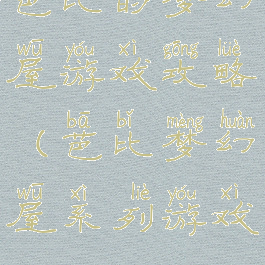 芭比的梦幻
wū yóu xì gōng lüè
屋游戏攻略
bā bǐ mèng huàn
（芭比梦幻
wū xì liè yóu xì
屋系列游戏